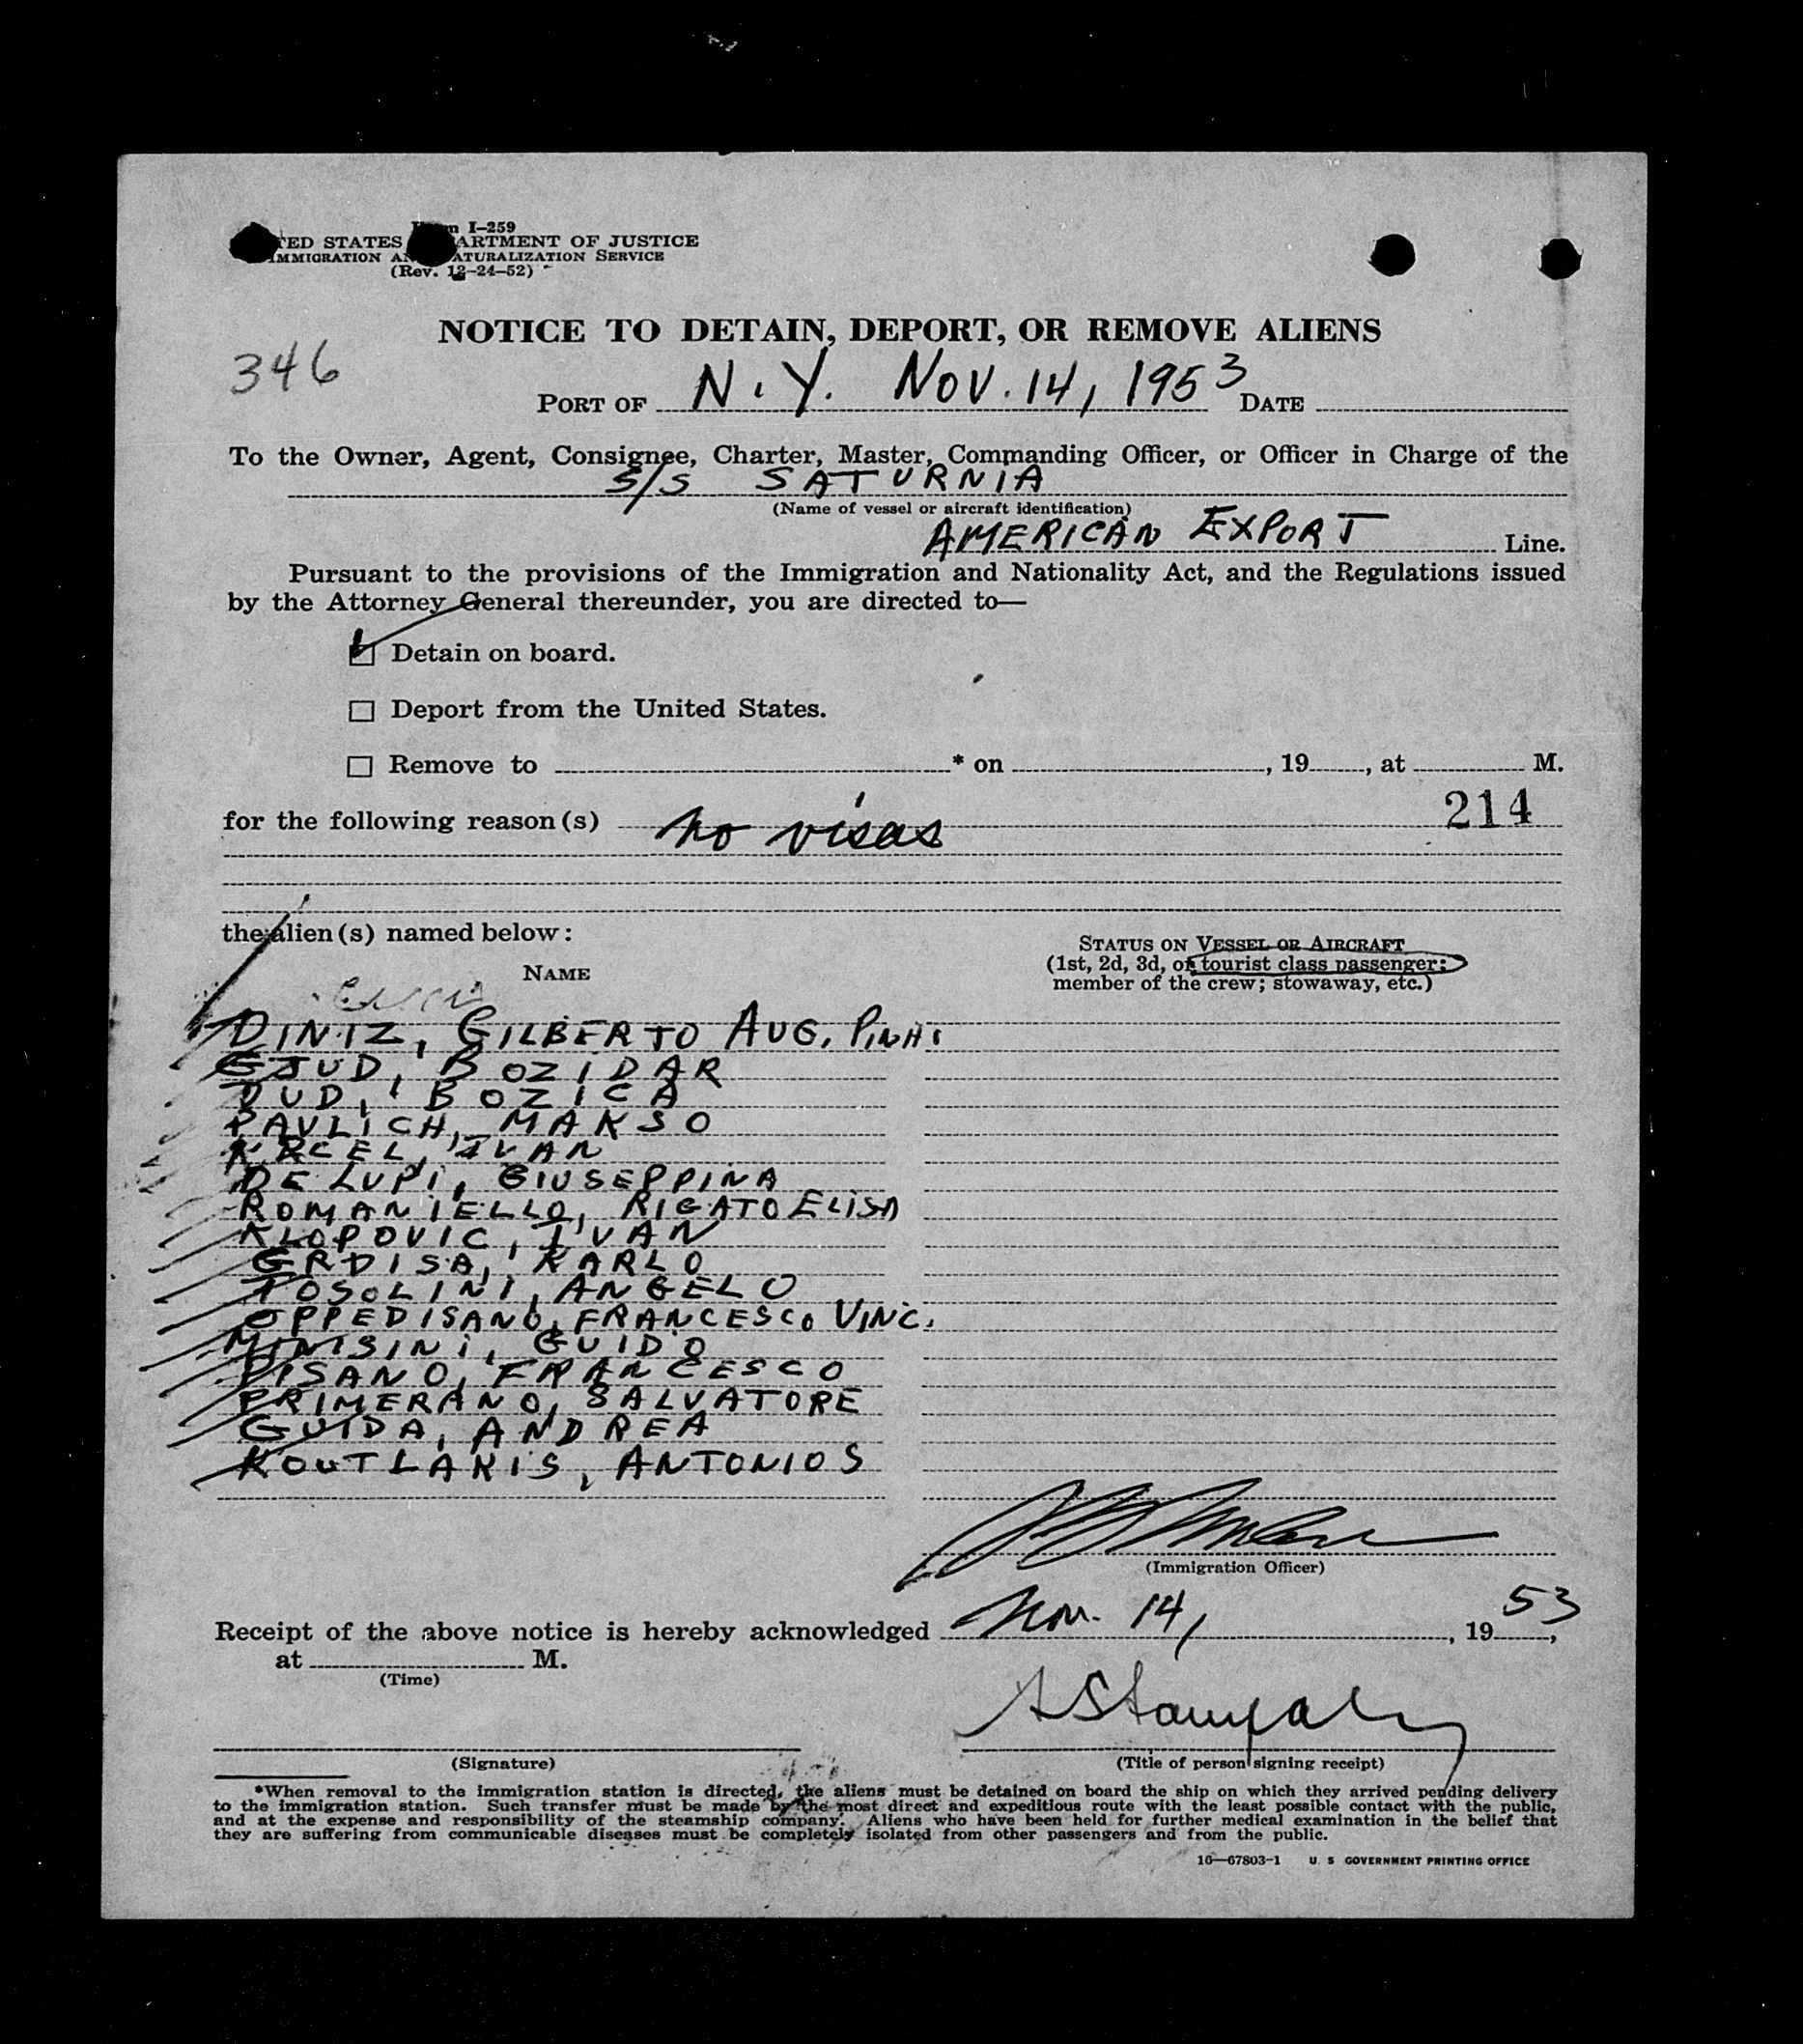 Form I–259
UNITED STATES DEPARTMENT OF JUSTICE
IMMIGRATION AND NATURALIZATION SERVICE
(Rev. 12–24–52)
NOTICE TO DETAIN, DEPORT, OR REMOVE ALIENS
346
PORT OF N.Y. NOV. 14, 1953 DATE
To the Owner, Agent, Consignee, Charter, Master, Commanding Officer, or Officer in Charge of the
S/S SATURNIA
(Name of vessel or aircraft identification)
AMERICAN EXPORT Line.
Pursuant to the provisions of the Immigration and Nationality Act, and the Regulations issued
by the Attorney General thereunder, you are directed to—
Detain on board.
Deport from the United States.
Remove to * on , 19 , at M.
214
for the following reason(s) no visas
the alien(s) named below:
NAME
STATUS ON VESSEL OR AIRCRAFT
(1st, 2d, 3d, or tourist class passenger;
member of the crew; stowaway, etc.)
DINIZ, GILBERTO AUG. PINH.
GJUD, BOZIDAR
DUD, BOZICA
PAVLICH, MAKSO
KRCEL, IVAN
DE LUPI, GIUSEPPINA
ROMANIELLO, RIGATO ELISA
KLOPOVIC, IVAN
GRDISA, KARLO
TOSOLINI, ANGELO
OPPEDISANO, FRANCESCO VINC.
MINISINI, GUIDO
PISANO, FRANCESCO
PRIMERANO, SALVATORE
GUIDA, ANDREA
KOUTLAKIS, ANTONIOS
(Immigration Officer)
Receipt of the above notice is hereby acknowledged Nov. 14, , 19 53,
at M.
(Time)
(Signature)
(Title of person signing receipt)
*When removal to the immigration station is directed, the aliens must be detained on board the ship on which they arrived pending delivery
to the immigration station. Such transfer must be made by the most direct and expeditious route with the least possible contact with the public,
and at the expense and responsibility of the steamship company. Aliens who have been held for further medical examination in the belief that
they are suffering from communicable diseases must be completely isolated from other passengers and from the public.
16—67803-1 U. S GOVERNMENT PRINTING OFFICE